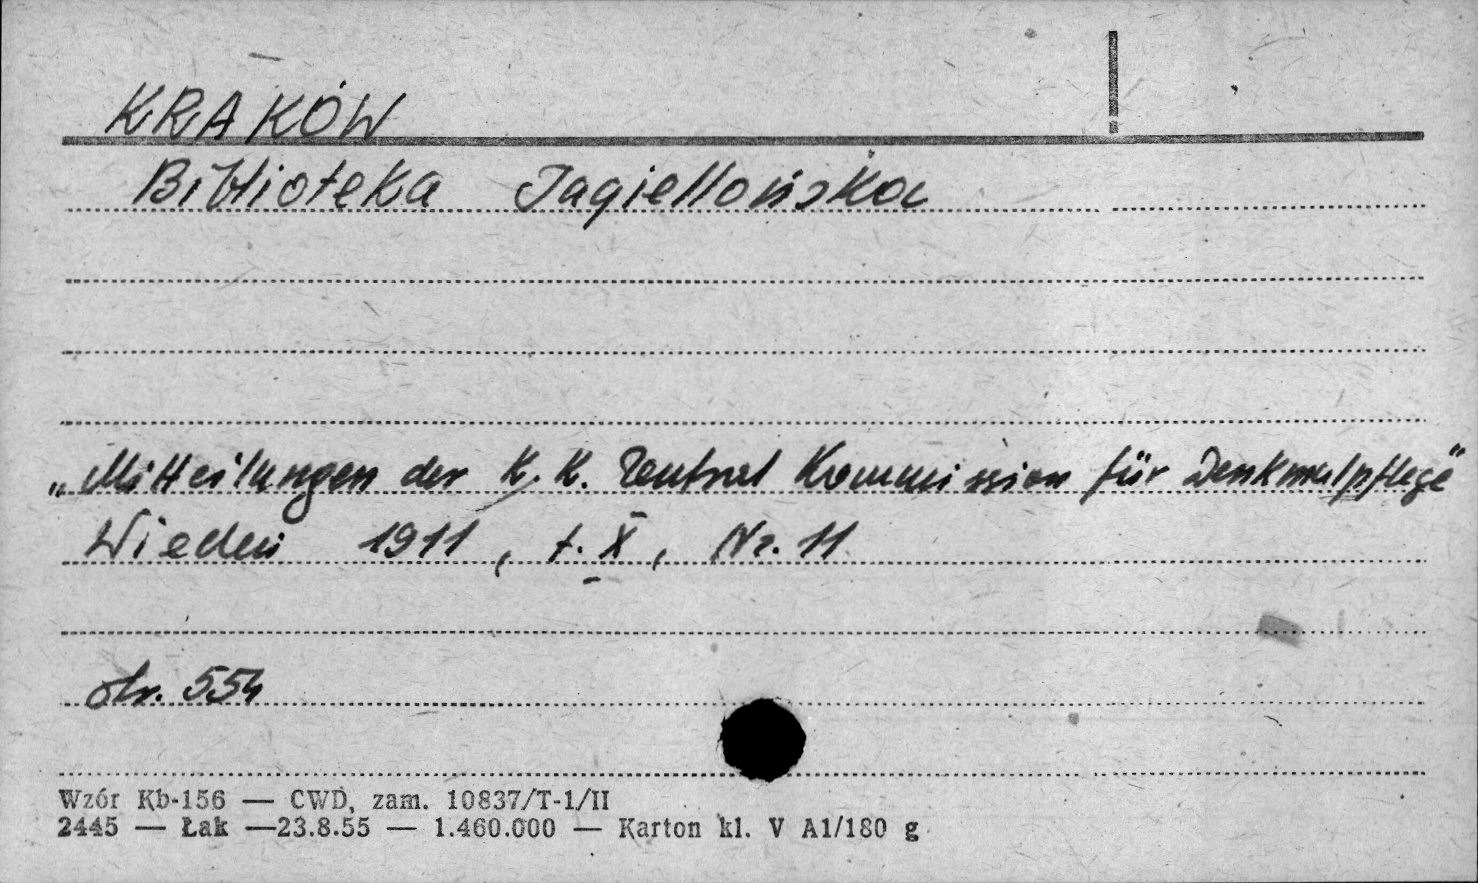 KRAKÓW
Biblioteka Jagiellońska
„Mitteilungen der K. K. Zentral Kommission für Denkmalpflege"
Wiedeń 1911, t. X, Nr. 11
str. 554
Wzór Kb-156 — CWD, zam. 10837/T-1/II
2445 — Łak —23.8.55 — 1.460.000 — Karton kl. V A1/180 g